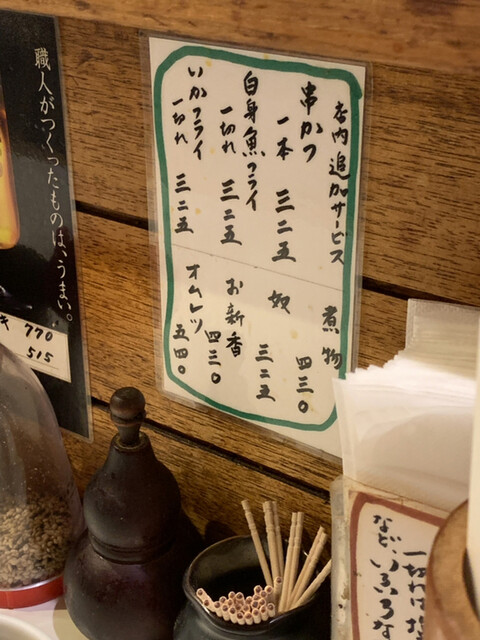 店内追加サービス
串かつ
一本 三二五
白身魚フライ
一切れ 三二五
いかフライ
一切れ 三二五
煮物
四三〇
奴
三二五
お新香
四三〇
オムレツ
五四〇
職人がつくったものは、うまい。
770
515
一切れは
など、いろいろな